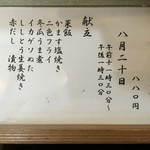 八月二十日　八八〇円
午前十一時三〇分〜
午後一時三〇分
献立
菜飯
かます塩焼き
二色フライ
冬瓜うま煮
イカゲソぬた
ししとう生姜焼き
赤だし　漬物